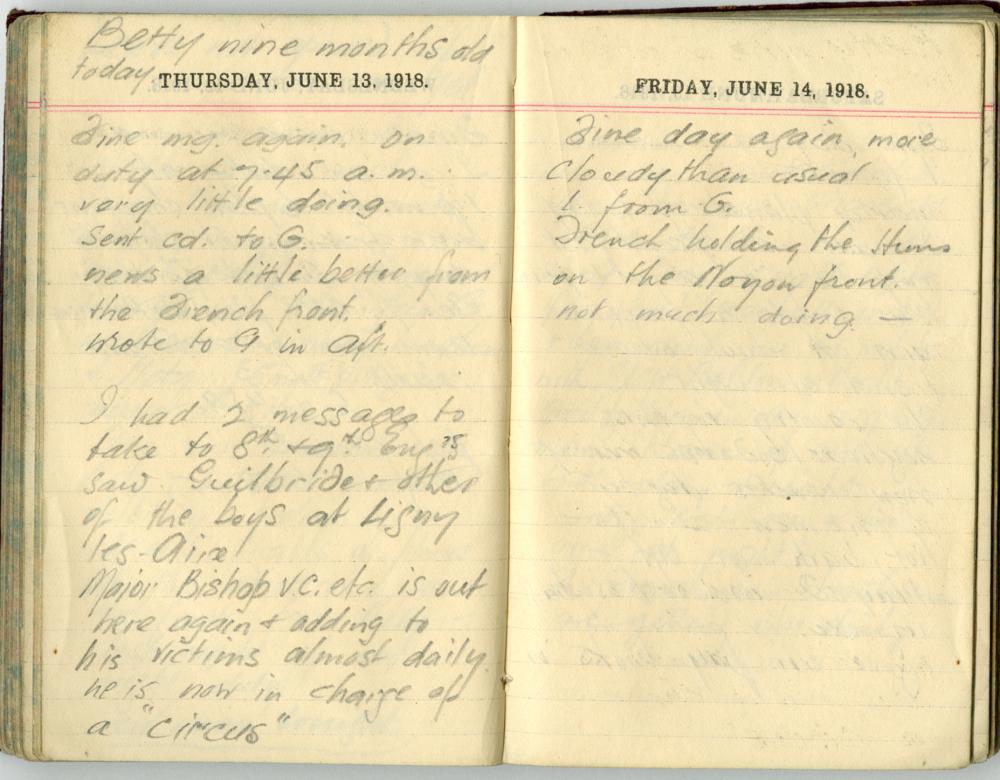 Betty nine months old
today.
THURSDAY, JUNE 13, 1918.
Fine mg. again. on
duty at 7.45 a.m.
very little doing.
sent cd. to G.
news a little better from
the French front.
wrote to G in aft.
I had 2 messages to
take to 8th + 9th Engrs
saw Guilbride + other
of the boys at Ligny
les-Aire
Major Bishop V.C. etc. is out
here again + adding to
his victims almost daily.
he is now in charge of
a "circus"
FRIDAY, JUNE 14, 1918.
Fine day again, more
cloudy than usual
1 from G.
French holding the Huns
on the Noyon front.
not much doing. —